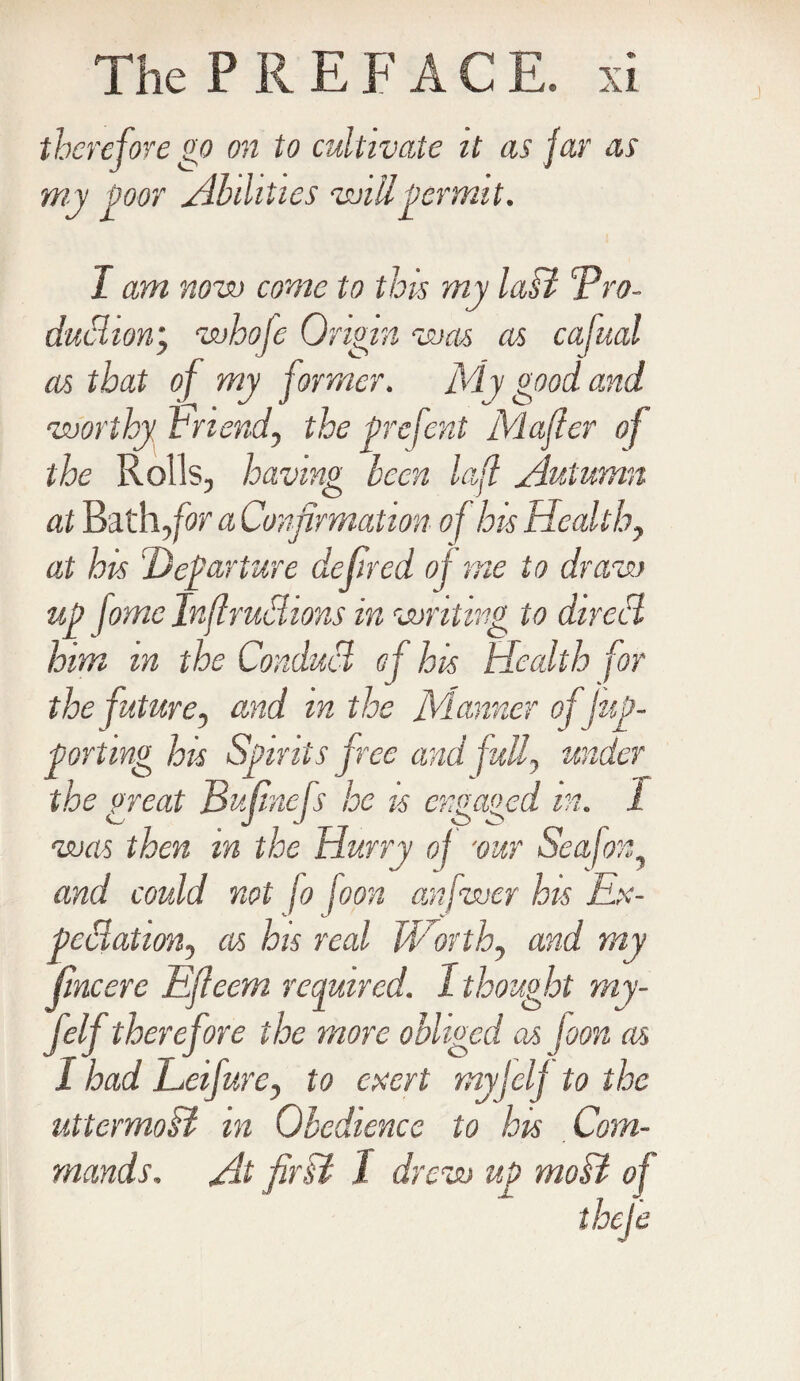 The PREFACE. xi
therefore go on to cultivate it as far as
my poor Abilities will permit.
I am now come to this my last Pro-
duction; whoſe Origin was as caſual
as that of my former. My good and
worthy Friend, the preſent Maſter of
the Rolls, having been laſt Autumn
at Bath, for a Confirmation of his Health,
at his Departure deſired of me to draw
up ſome Inſtructions in writing to direct
him in the Conduct of his Health for
the future, and in the Manner of ſup-
porting his Spirits free and full, under
the great Buſineſs he is engaged in. I
was then in the Hurry of our Seaſon,
and could not ſo ſoon anſwer his Ex-
pectation, as his real Worth, and my
ſincere Eſteem required. I thought my-
ſelf therefore the more obliged as ſoon as
I had Leiſure, to exert myſelf to the
uttermost in Obedience to his Com-
mands. At first I drew up most of
theſe